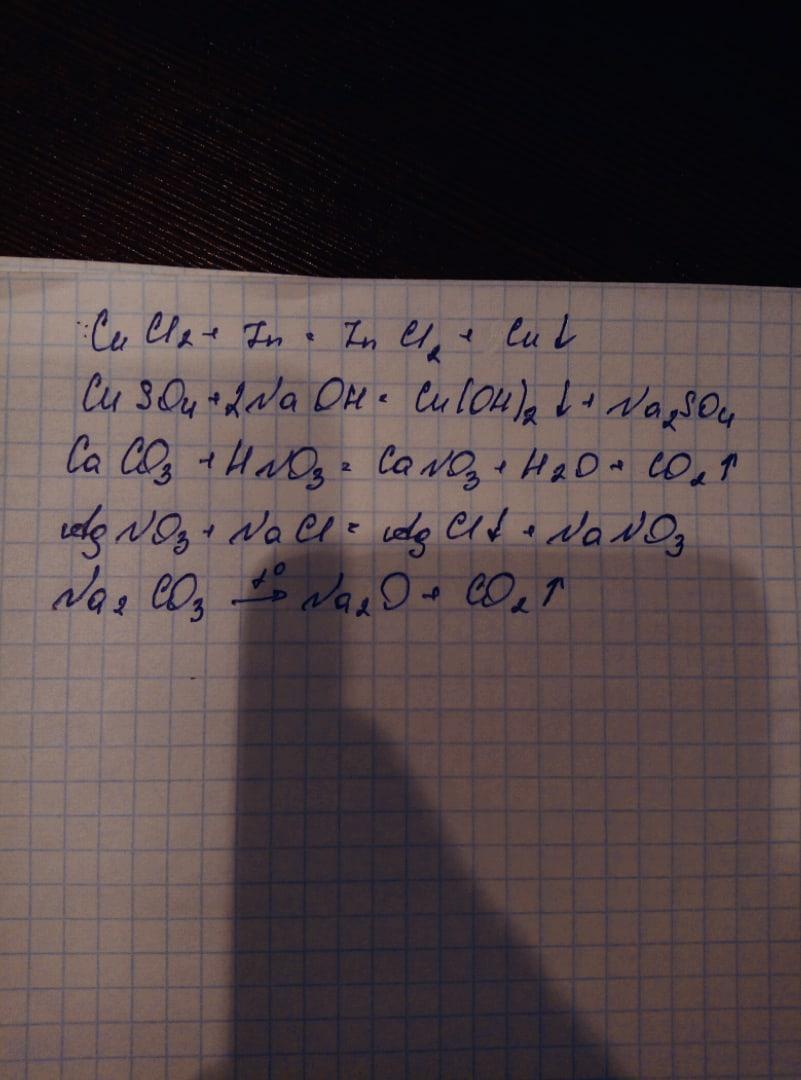 CuCl₂ + Zn = ZnCl₂ + Cu↓
CuSO₄ + 2NaOH = Cu(OH)₂↓ + Na₂SO₄
CaCO₃ + HNO₃ = CaNO₃ + H₂O + CO₂↑
AgNO₃ + NaCl = AgCl↓ + NaNO₃
Na₂CO₃ →t° Na₂O + CO₂↑